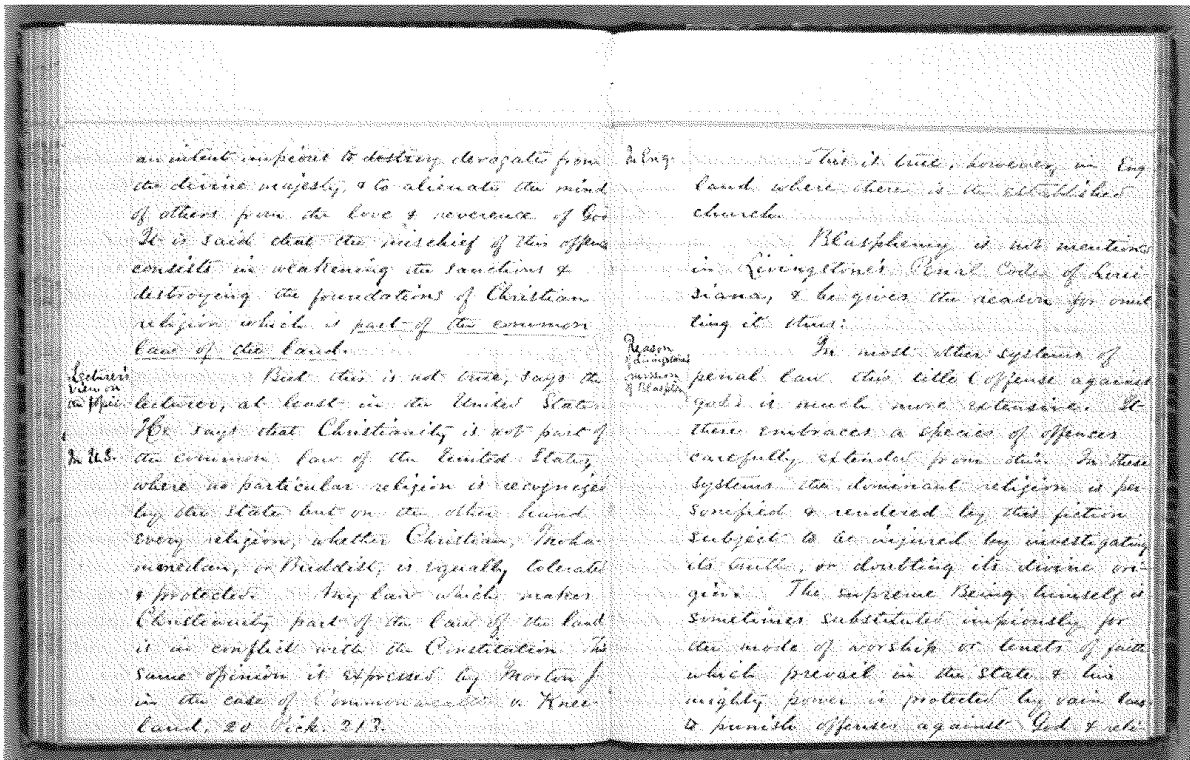 an intent impious to destroy derogates from
the divine majesty, & to alienate the mind
of others from the love & reverence of God
It is said that the mischief of this offense
consists in weakening the sanctions &
destroying the foundations of Christian
religion which is part of the common
law of the land.
Lecturer's
view on
the topic
But this is not true, says the
lecturer, at least in the United States.
He says that Christianity is not part of
In U.S.
the common law of the United States,
where no particular religion is recognized
by the state but on the other hand
every religion, whether Christian, Moha-
medan, or Buddist, is equally tolerated
& protected. Any law which makes
Christianity part of the law of the land
is in conflict with the Constitution. The
same opinion is expressed by Morton J
in the case of Commonwealth v Knee-
land, 20 Pick. 213.
In Eng.
This is true, however, in Eng
land where there is the established
church.
Blasphemy is not mentioned
in Livingstone's Penal Code of Loui-
siana, & he gives the reason for omit
ting it thus:
Reason
of Livingstone's
omission
of Blasphemy
In most other systems of
penal law this title (offense against
god) is much more extensive. It
there embraces a species of offences
carefully extended from this. In these
systems the dominant religion is per-
sonified & rendered by this fiction
subject to be injured by investigating
its truth, or doubting its divine ori-
gin. The supreme Being himself is
sometimes substituted impiously for
the mode of worship or tenets of faith
which prevail in the state & his
mighty power is protected by vain laws
to punish offenses against God & reli-